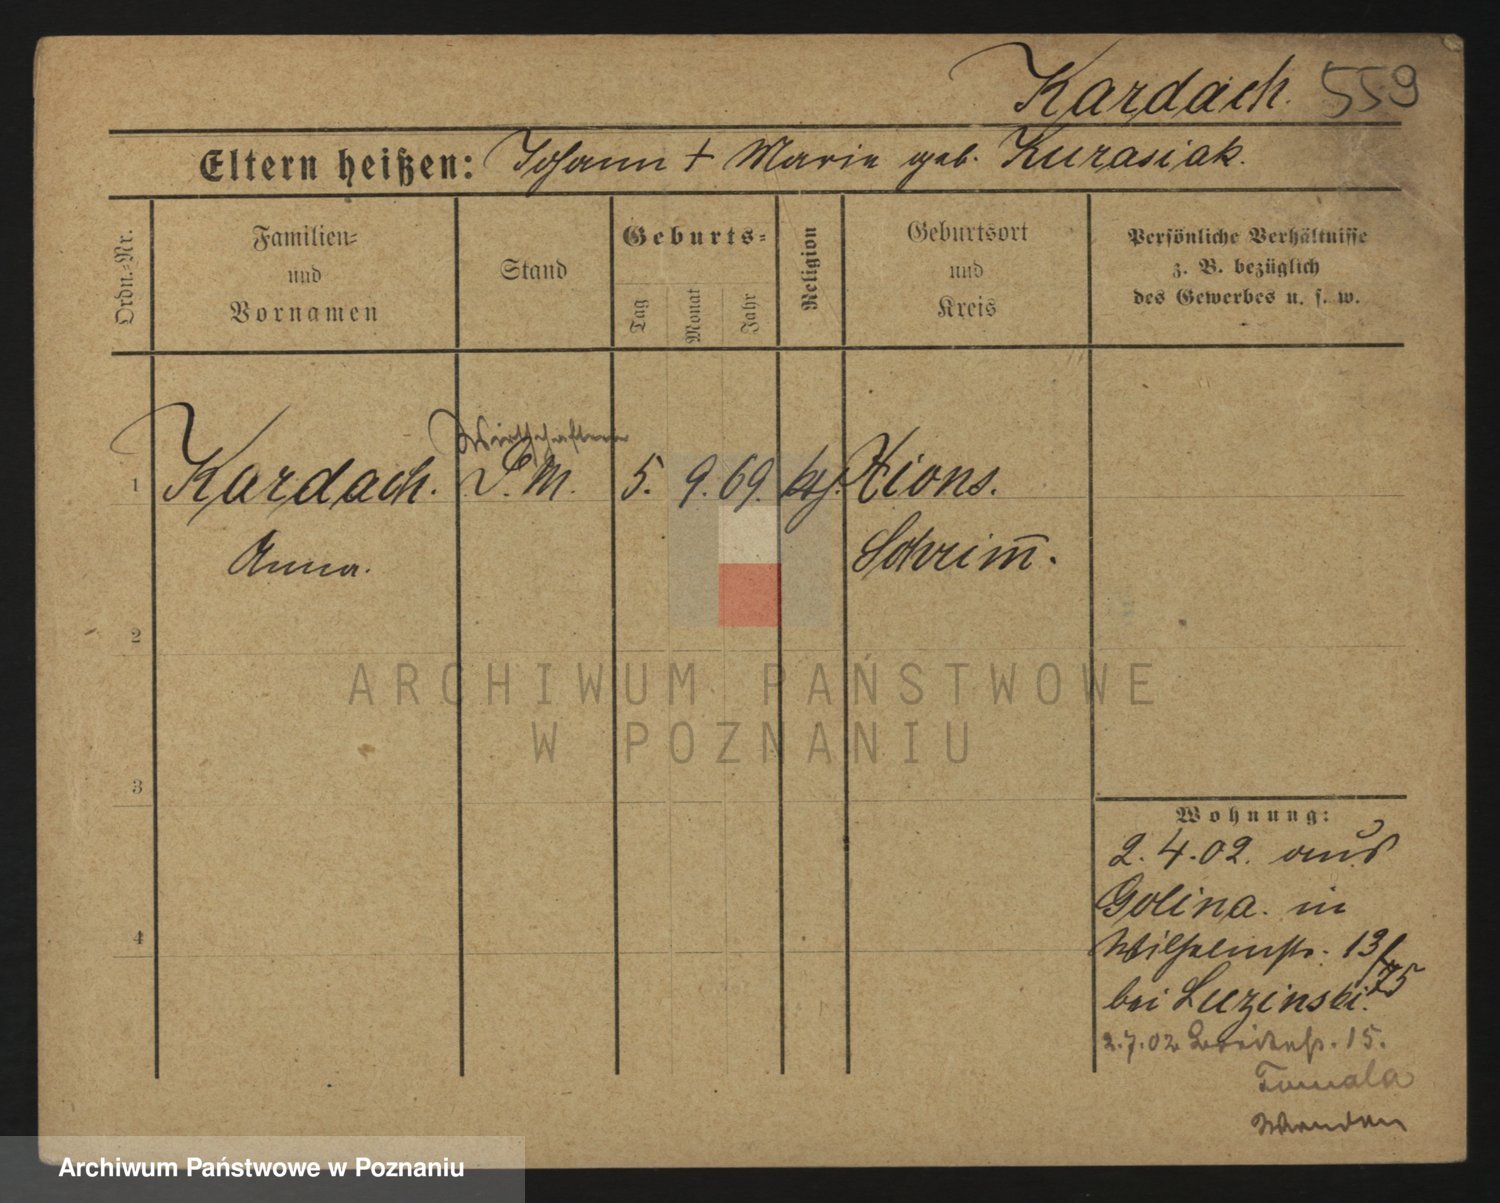 Kardach. 559
Eltern heißen: Johann + Marie geb. Kurasiak.
Ordn.-Nr.
Familien-
und
Vornamen
Stand
Geburts-
Tag
Monat
Jahr
Religion
Geburtsort
und
Kreis
Persönliche Verhältnisse
z. B. bezüglich
des Gewerbes u. s. w.
Wirtschafterin
1 Kardach. D.M. 5. 9. 69. kth. Xions.
Anna. Schrim̅.
2
3
4
Wohnung:
2.4.02. aus
Golina. in
Wilhelmstr. 13/75
bei Luzinski.
2.7.02 Breitestr. 15.
Tomala
ARCHIWUM PAŃSTWOWE
W POZNANIU
Archiwum Państwowe w Poznaniu